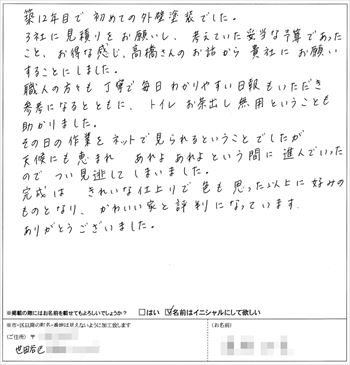 築12年目で初めての外壁塗装でした。
3社に見積りをお願いし、考えていた妥当な予算であった
こと、お得な感じ、高橋さんのお話から貴社にお願い
することにしました。
職人の方々も丁寧で毎日わかりやすい日報もいただき
参考になるとともに、トイレ お茶出し無用ということも
助かりました。
その日の作業をネットで見られるということでしたが
天候にも恵まれ あれよあれよという間に進んでいった
のでつい見逃してしまいました。
完成は きれいな仕上りで色も思った以上に好みの
ものとなり、かわいい家と評判になっています。
ありがとうございました。
※掲載の際にはお名前を載せてもよろしいでしょうか？ □はい ☑名前はイニシャルにして欲しい
※市・区以降の町名・番地は見えないように加工致します
(ご住所) 〒
(お名前)
世田谷区